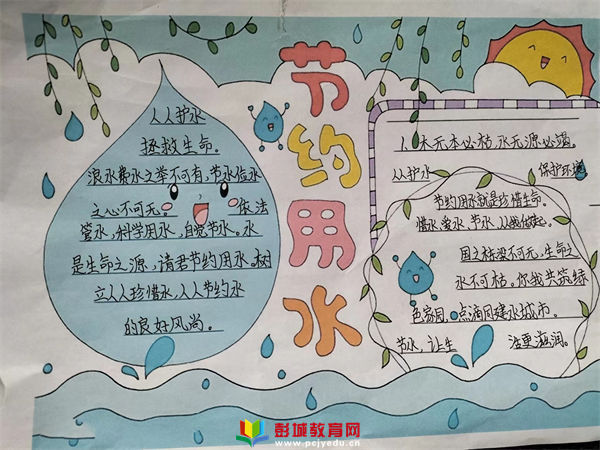 节约用水
人人护水
拯救生命。
浪水费水之举不可有,节水俭水
之心不可无。 依法
管水,科学用水,自觉节水。水
是生命之源,请君节约用水。树
立人人珍惜水,人人节约水
的良好风尚。
木无本必枯,水无源必竭。
人人护水 保护环境
节约用水就是珍惜生命。
惜水、爱水、节水,从我做起。
国之栋梁不可无,生命之
水不可枯。你我共筑绿
色家园,点滴同建水城市。
节水,让生 活更滋润。
彭城教育网
www.pcjyedu.cn